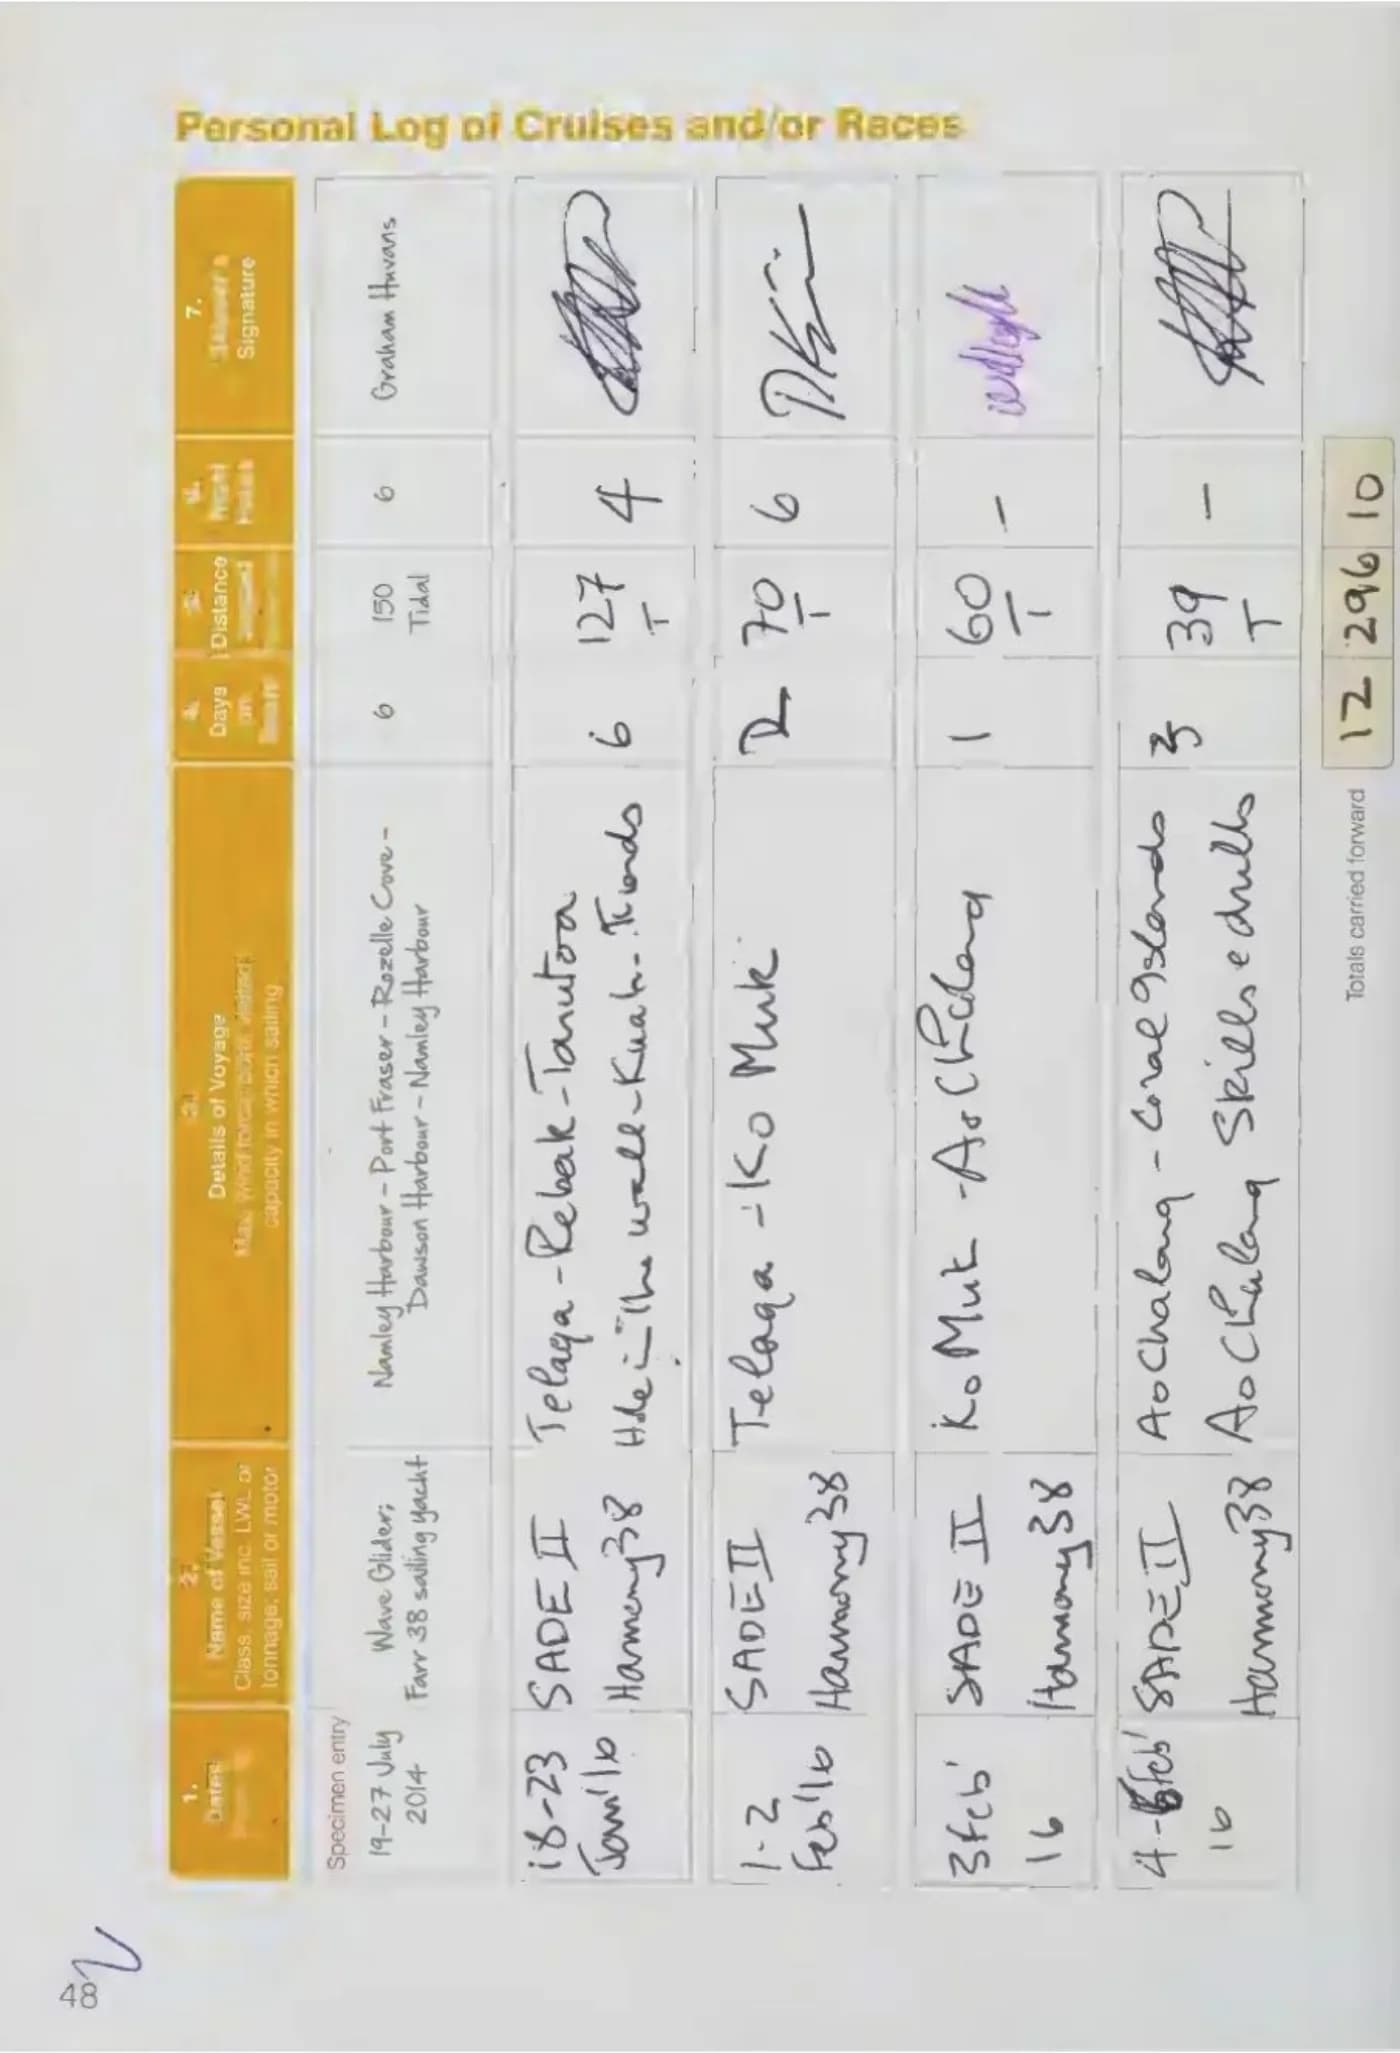 48
Personal Log of Cruises and/or Races
1.
Dates
2.
Name of Vessel
Class, size inc. LWL or
tonnage; sail or motor
3.
Details of Voyage
Max. wind force, ports visited,
capacity in which sailing
4.
Days
on
5.
Distance
6.
Night
7.
Signature
Specimen entry
19-27 July
2014
Wave Glider;
Farr 38 sailing yacht
Namley Harbour - Port Fraser - Rozelle Cove -
Dawson Harbour - Namley Harbour
6
150
Tidal
6
Graham Huvans
18-23
Jan'16
SADE II
Harmony 38
Telaga - Rebak - Tanutoa
Hole in the wall - Kuah -
6
127
T
4
1-2
Feb'16
SADE II
Harmony 38
Telaga - Ko Muk
70
T
6
3 Feb'
16
SADE II
Harmony 38
Ko Muk - Ao Chalong
1
60
T
-
4-
Feb'
16
SADE II
Harmony 38
Ao Chalong - Coral Islands
Ao Chalong Skills & drills
39
T
-
Totals carried forward
12 296 10